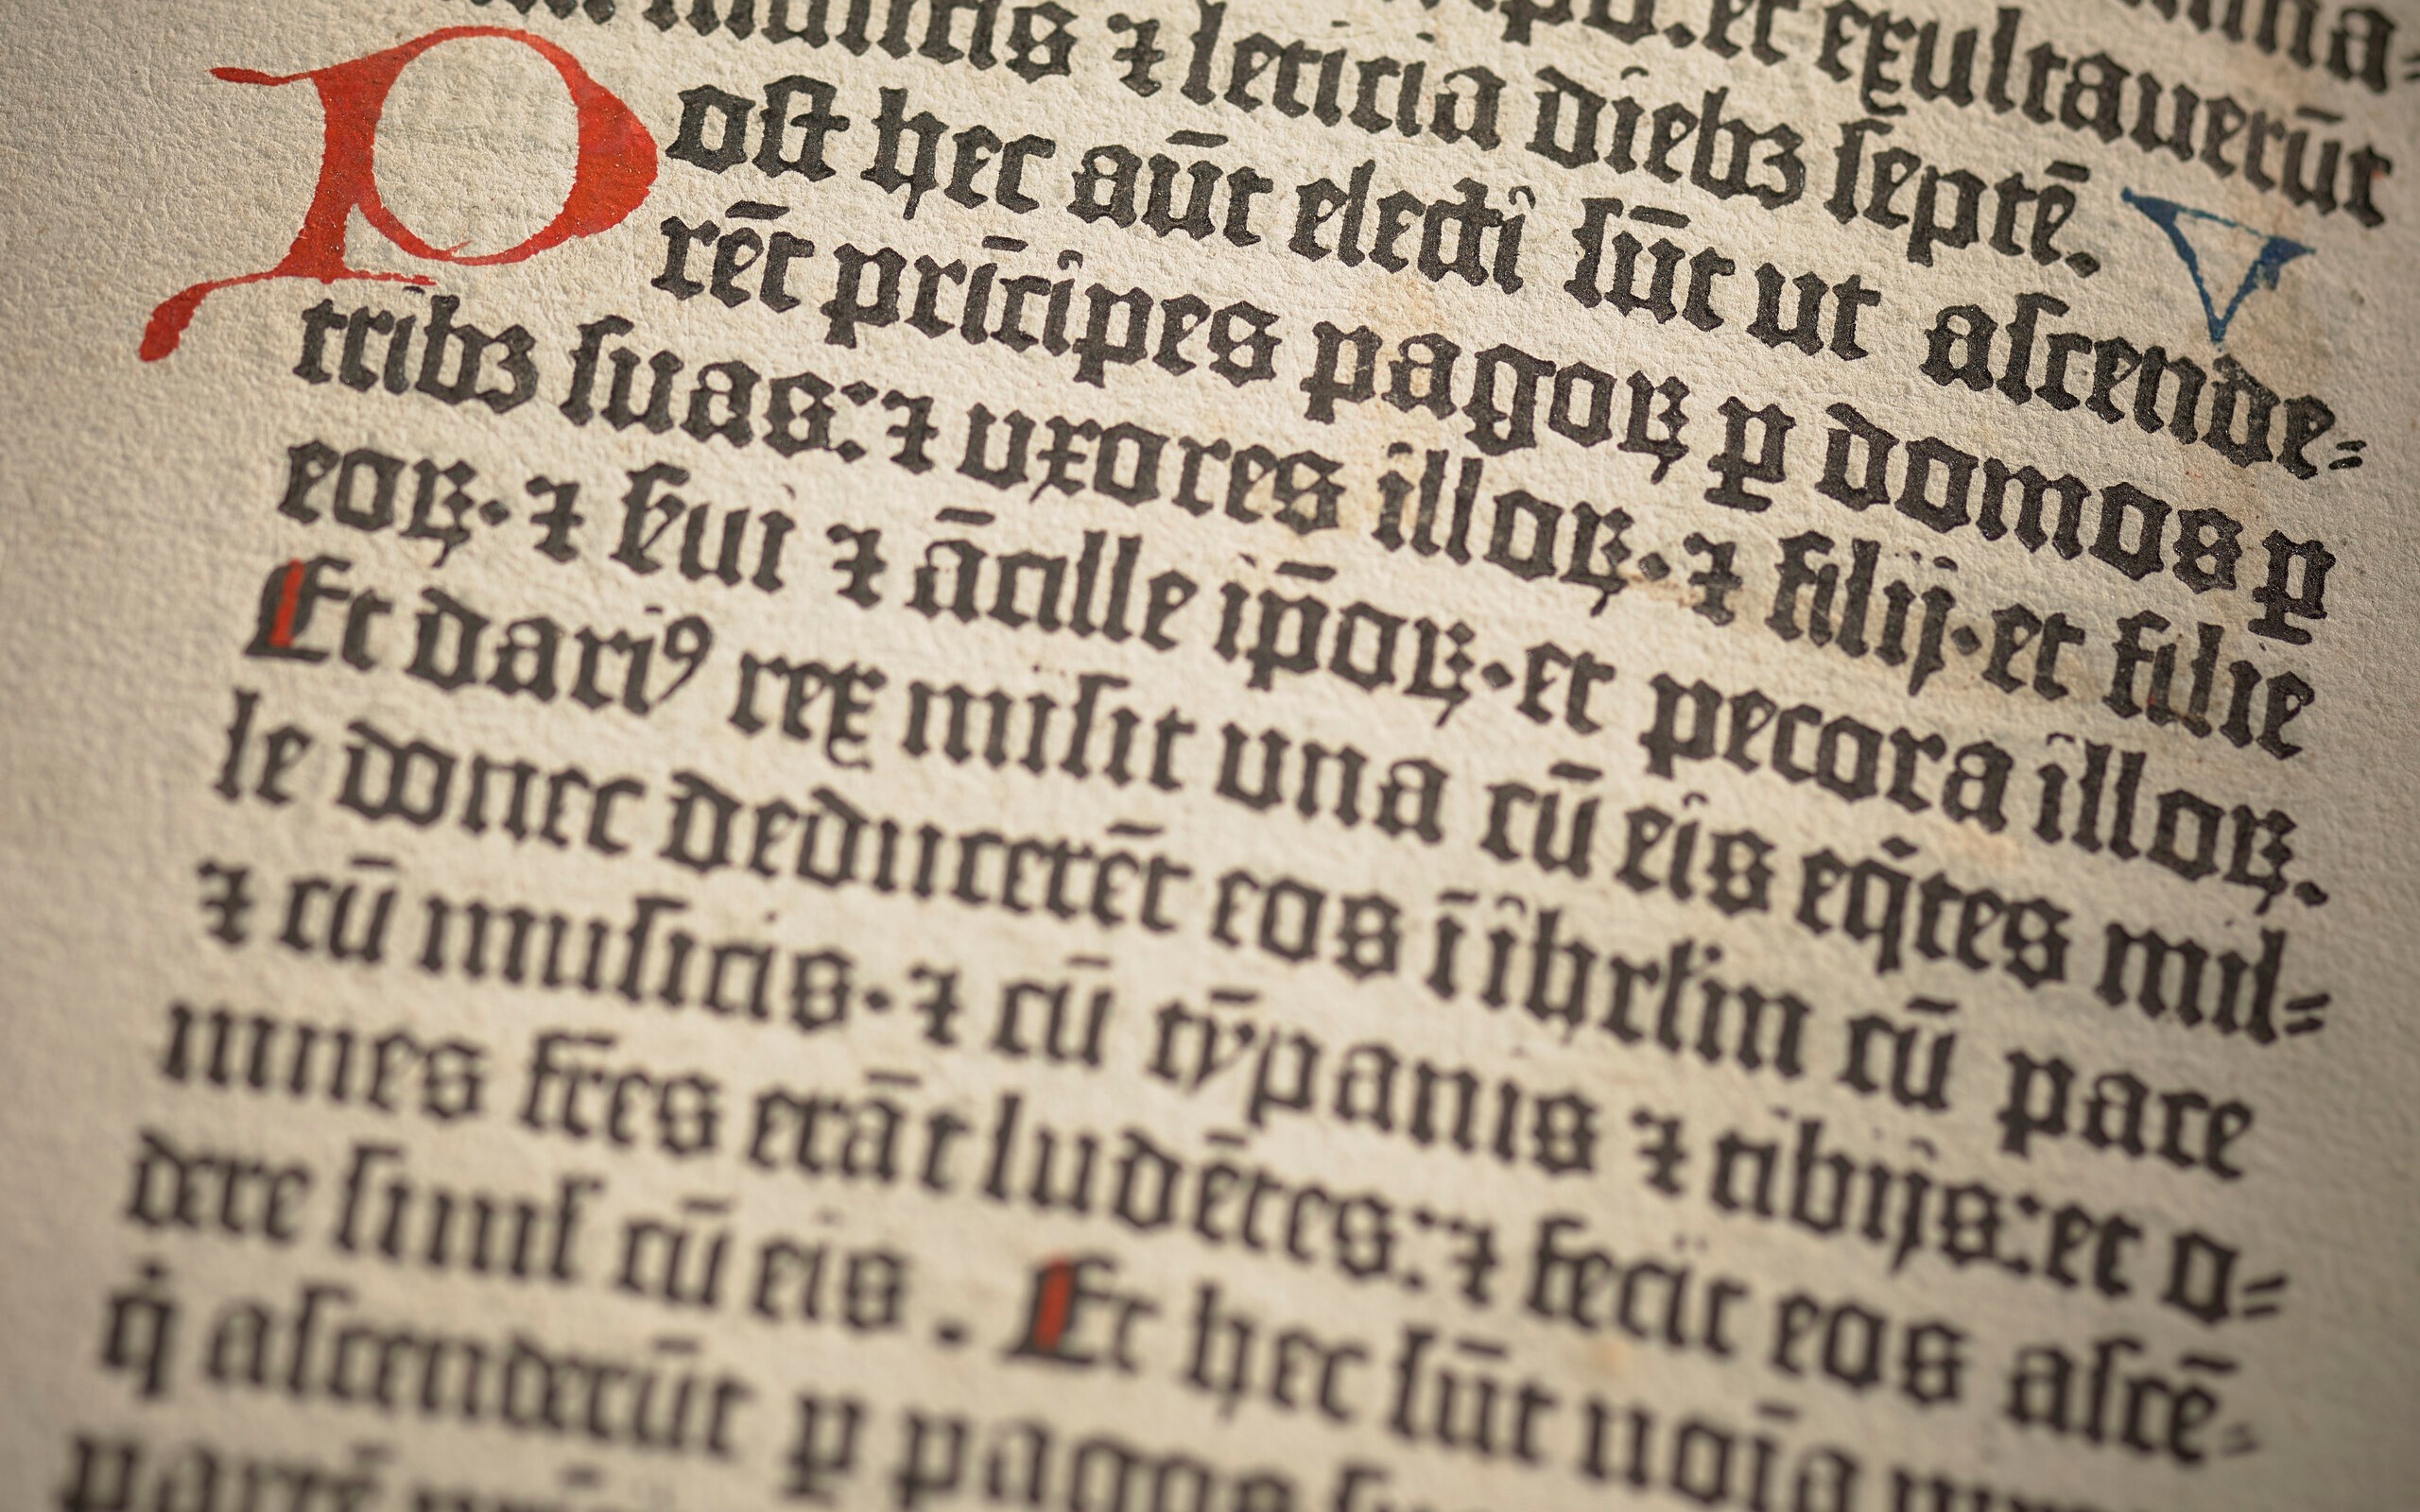 et exultauerūt
musicis ⁊ leticia diebꝫ septē. V
Post hec aūt electi sūt ut ascende=
rēt prīcipes pagoꝝ ꝑ domos ꝑ
tribꝫ suas: ⁊ uxores illoꝝ· ⁊ filij· et filie
eoꝝ· ⁊ ẜui ⁊ ācille ip̄oꝝ· et pecora illoꝝ.
Et dariꝰ rex misit una cū eis eq̄tes mil=
le donec deducerēt eos ī ihrł̄m cū pace
⁊ cū musicis· ⁊ cū tȳpanis ⁊ tibijs: et o=
mnes fr̄es erāt ludētes: ⁊ fecit eos ascē=
dere simł cū eis. Et hec sūt noīa
qͥ ascenderūt ꝑ pagos
partē